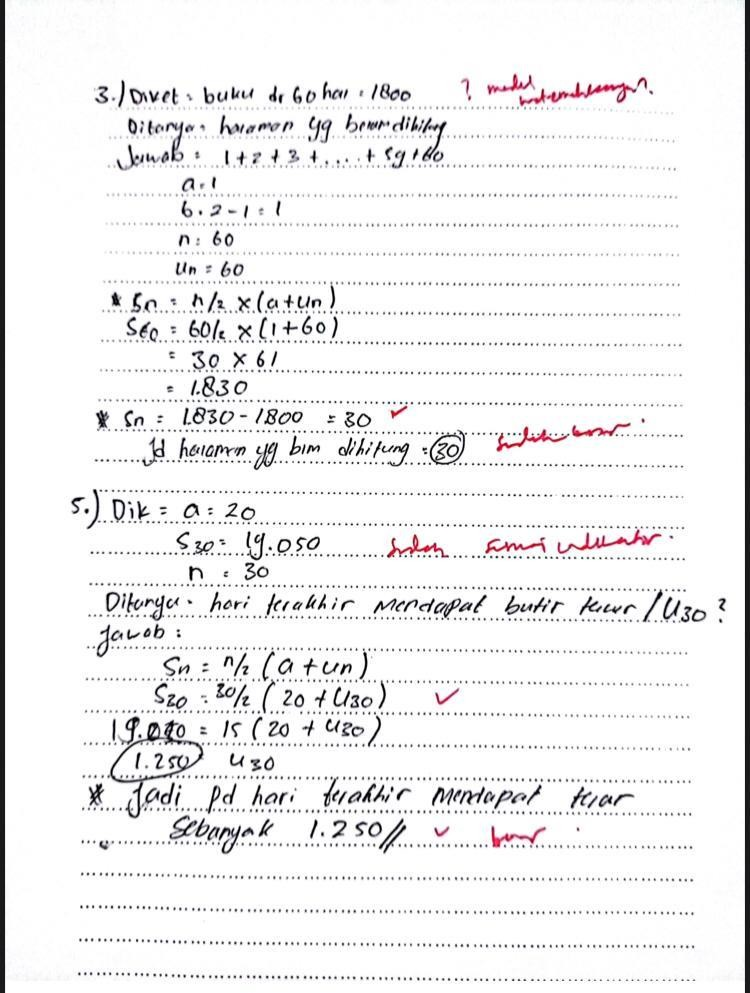 3./ Diket : buku dr 60 hal : 1800 ? model
Ditanya : halaman yg belum dihitung
Jawab : 1+2+3+....+59+60
a = 1
b = 2-1 = 1
n = 60
Un = 60
* Sn = n/2 x (a+Un)
S60 = 60/2 x (1+60)
= 30 x 61
= 1.830
* Sn = 1.830 - 1800 = 30 ✓
Jd halaman yg blm dihitung = 30 sudah benar.
5.) Dik = a = 20
S30 = 19.050 sudah
n = 30
Ditanya : hari terakhir mendapat butir telur / U30 ?
Jawab :
Sn = n/2 (a + un)
S20 = 30/2 (20 + U30) ✓
= 15 (20 + U30)
1.250 U30
* Jadi pd hari terakhir mendapat telur
Sebanyak 1.250 // ✓ benar